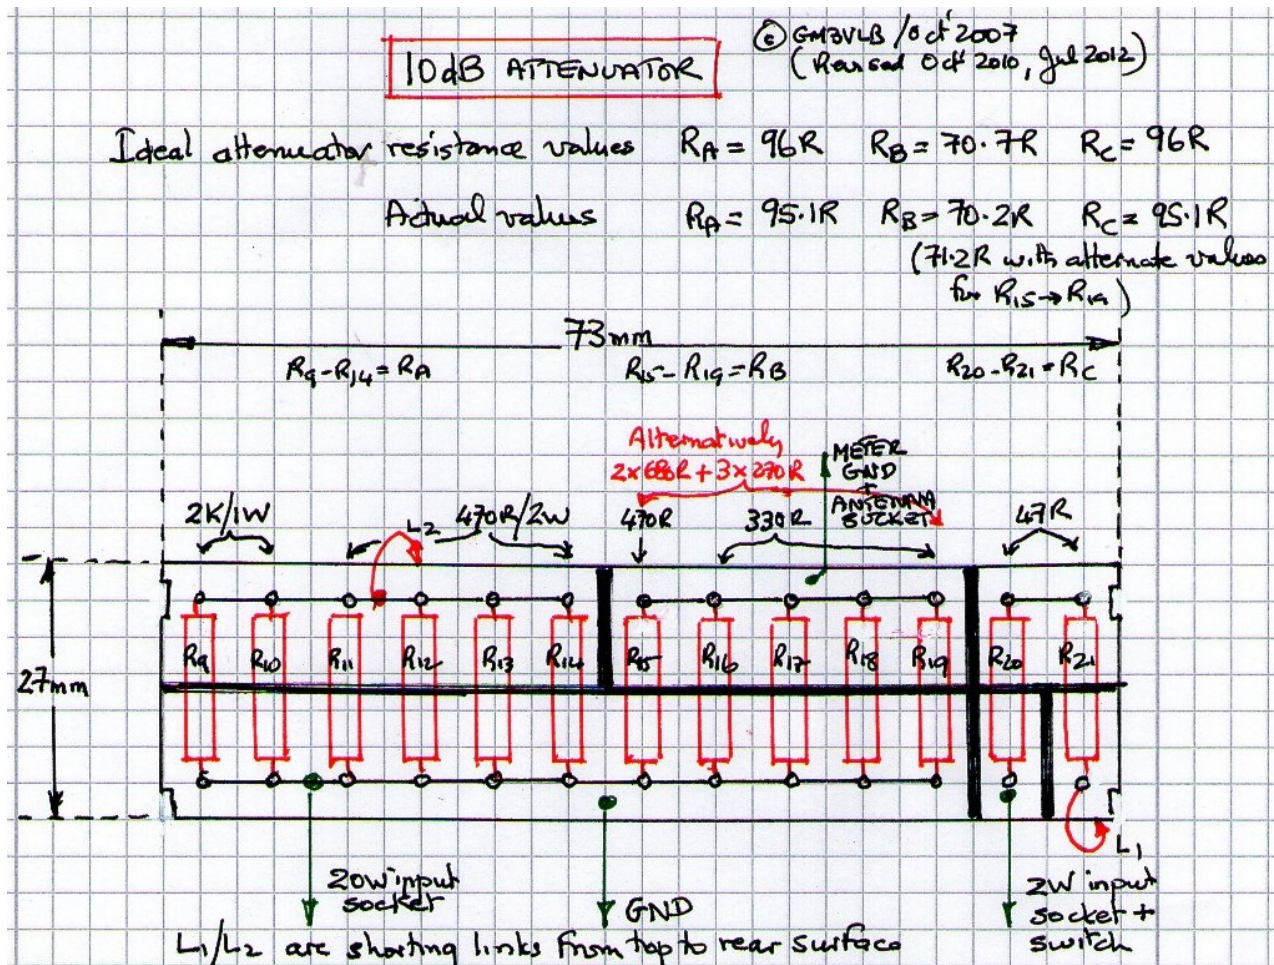 © GM3VLB / Oct 2007
10dB ATTENUATOR
(Revised Oct 2010, Jul 2012)
Ideal attenuator resistance values RA = 96R RB = 70.7R RC = 96R
Actual values RA = 95.1R RB = 70.2R RC = 95.1R
(71.2R with alternate values
for R15→R19)
73mm
R9-R14 = RA R15-R19 = RB R20-R21 = RC
Alternatively
2x680R + 3x270R
METER
GND
+
ANTENNA
SOCKET
2K/1W L2 470R/2W 470R 330R 47R
R9 R10 R11 R12 R13 R14 R15 R16 R17 R18 R19 R20 R21
27mm
L1
20W input
socket
GND
2W input
socket +
switch
L1/L2 are shorting links from top to rear surface